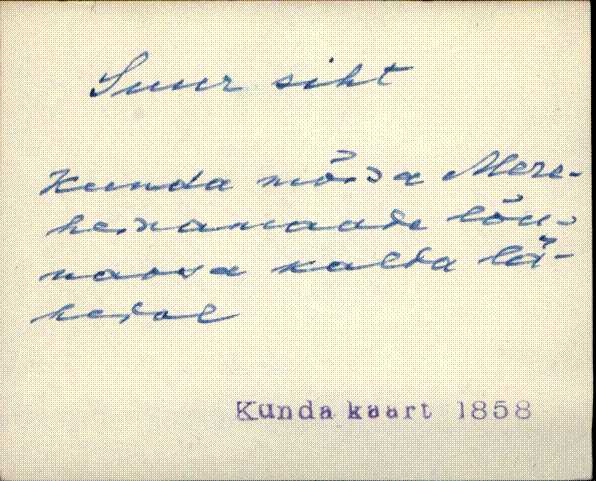 Suur siht
Kunda mõisa Mere-
heinamaade lõu-
naosa kalda lä-
hedal
Kunda kaart 1858